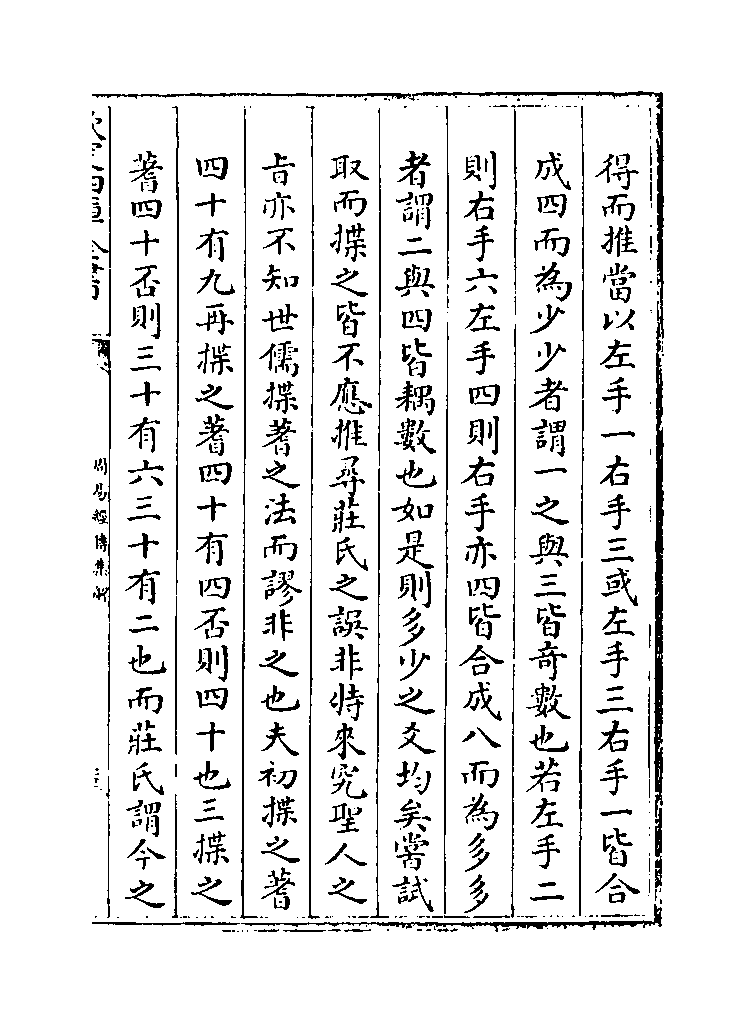 得而推當以左手一右手三或左手三右手一皆合
成四而為少少者謂一之與三皆奇數也若左手二
則右手六左手四則右手亦四皆合成八而為多多
者謂二與四皆耦數也如是則多少之爻均矣嘗試
取而揲之皆不應推尋莊氏之誤非特來究聖人之
㫖亦不知世儒揲蓍之法而謬非之也夫初揲之蓍
四十有九再揲之蓍四十有四否則四十也三揲之
蓍四十否則三十有六三十有二也而莊氏謂今之
欽定四庫全書
周易經傳集解